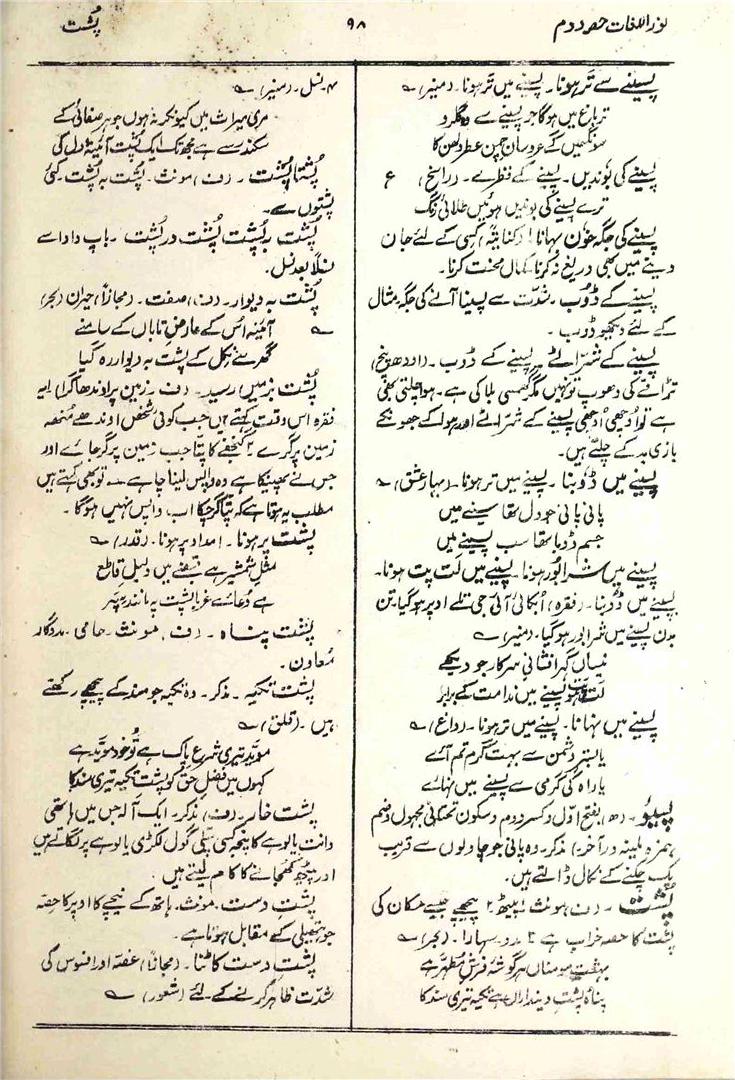 نور اللغات حصہ دوم
۹۸
پُشت
پسینے سے تَر ہونا۔ پسینے میں تَر ہونا۔ (منیر) ؎
تر باغ میں ہوگا جو پسینے سے وہ گلرو
سونگھیں گے عروسانِ چمن عطر دلھن کا
پسینے کی بُوندیں۔ پسینے کے قطرے۔ (راسخ) ع
ترے پسینے کی بوندیں ہوئیں طلائی رنگ
پسینے کی جگہ خون بہانا (کنایتہً) کسی کے لئے جان
دینے میں بھی دریغ نہ کرنا کمال محنت کرنا۔
پسینے کے ڈوب۔ شدّت سے پسینا آنے کی جگہ مثال
کے لئے دیکھو ڈوب۔
پسینے کے شرّاٹے۔ پسینے کے ڈوب۔ (اودھ پنچ)
تڑاقے کی دھوپ تو نہیں مگر گھمسی بلا کی ہے۔ ہوا چلتی بھی
ہے تو اُدھی اُدھی پسینے کے شرّاٹے اور ہوا کے جھونکے
بازی بد کے چلتے ہیں۔
پسینے میں ڈوبنا۔ پسینے میں تر ہونا۔ (بہار عشق) ؎
پانی پانی جو دل تھا سینے میں
جسم ڈوبا تھا سب پسینے میں
پسینے میں شرابُور ہونا۔ پسینے میں لَت پت ہونا۔
پسینے میں ڈُوبنا۔ (فقرہ) اُبکائی آئی جی تلے اوپر ہوگیا۔ تن
بدن پسینے میں شرابور ہوگیا۔ (منیر) ؎
نیساں گہر افشانیِ سرکار جو دیکھے
لت پت ہو پسینے میں ندامت کے برابر
پسینے میں نہانا۔ پسینے میں تر ہونا۔ (داغ) ؎
یا بسترِ دشمن سے بہت گرم تم آئے
یا راہ کی گرمی سے پسینے میں نہائے
پسیؤُ۔ (ھ) بفتح اوّل و کسر دوم و سکون تحتانی مجہول و ضم
ہمزہ ملینہ در آخر) مذکر۔ وہ پانی جو چاولوں سے قریب
پک چکنے کے نکال ڈالتے ہیں۔
پُشت۔ (ف) مونث۔ ۱ پیٹھ ۲ پیچھے جیسے مکان کی
پشت کا حصہ خراب ہے ۳ مدد۔ سہارا۔ (بحر) ؎
بہشتِ مومناں ہر گوشۂ فرشِ مُطہّر ہے
پناہِ پُشتِ دینداراں ہے تکیہ تیری مسند کا
۴۔ نسل۔ (منیر) ؎
مری میراث میں کیونکر نہ ہوں جوہر صفائی کے
سکندر سے ہے مجھ تک ایک پُشت آئینۂ دل کی
پُشتا پُشت۔ (ف) مونث۔ پشت بہ پشت۔ کئی
پشتوں سے۔
پُشت بہ پُشت پُشت در پُشت۔ باپ دادا سے
نسلاً بعد نسل۔
پُشت بہ دیوار۔ (ف) صفت۔ (مجازاً) حیران (بحر)
؎ آئینہ اُس کے عارضِ تاباں کے سامنے
گھر سے نکل کے پشت بہ دیوار رہ گیا
پُشت بزمیں رسید۔ (ف۔ زمین پر اوندھا گرا) ۱ یہ
فقرہ اس وقت کہتے ہیں جب کوئی شخص اوندھے مُنھ
زمین پر گرے ۲ گنجفے کا پتّا جب زمین پر گر جائے اور
جس نے پھینکا ہے وہ واپس لینا چاہے تو بھی کہتے ہیں
مطلب یہ ہوتا ہے کہ پتّا گر چکا اب واپس نہیں ہوگا۔
پُشت پر ہونا۔ امداد پر ہونا۔ (قدر) ؎
مثلِ شمشیر ہے قبضے میں دلیلِ قاطع
ہے دُعائے غربا پشت پہ مانندِ سپر
پُشت پناہ۔ (ف) مونث۔ حامی۔ مددگار
مُعاون۔
پُشت تکیہ۔ مذکر۔ وہ تکیہ جو مسند کے پیچھے رکھتے
ہیں۔ (قلق) ؎
مؤیّد تیری شرعِ پاک ہے تُو خود مؤیّد ہے
کہوں میں فضلِ حق کو پشت تکیہ تیری مسند کا
پشت خار (ف) مذکر۔ ایک آلہ جس میں ہاتھی
دانت یا لوہے کا پنجہ کسی پتلی گول لکڑی یا لوہے پر لگاتے ہیں
اور پیٹھ کھجانے کا کام لیتے ہیں۔
پشتِ دست۔ مونث۔ ہاتھ کے نیچے کا اوپر کا حصّہ
جو ہتھیلی کے مقابل ہوتا ہے۔
پشتِ دست کاٹنا۔ (مجازاً) غصّہ اور افسوس کی
شدّت ظاہر کرنے کے لئے (شعور) ؎